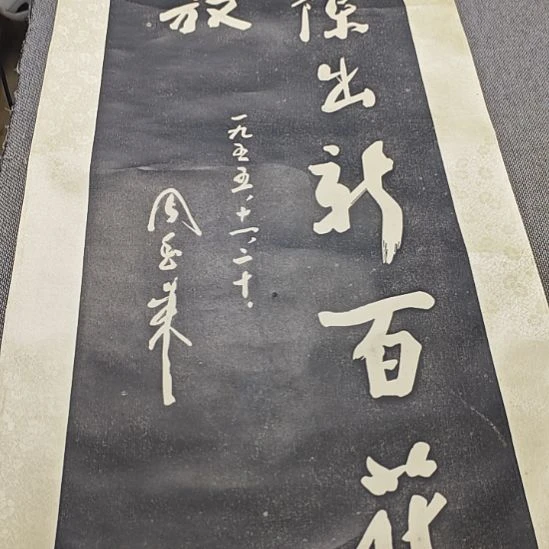 陳出新百花
放
一九五五、十一、二十.
周恩來